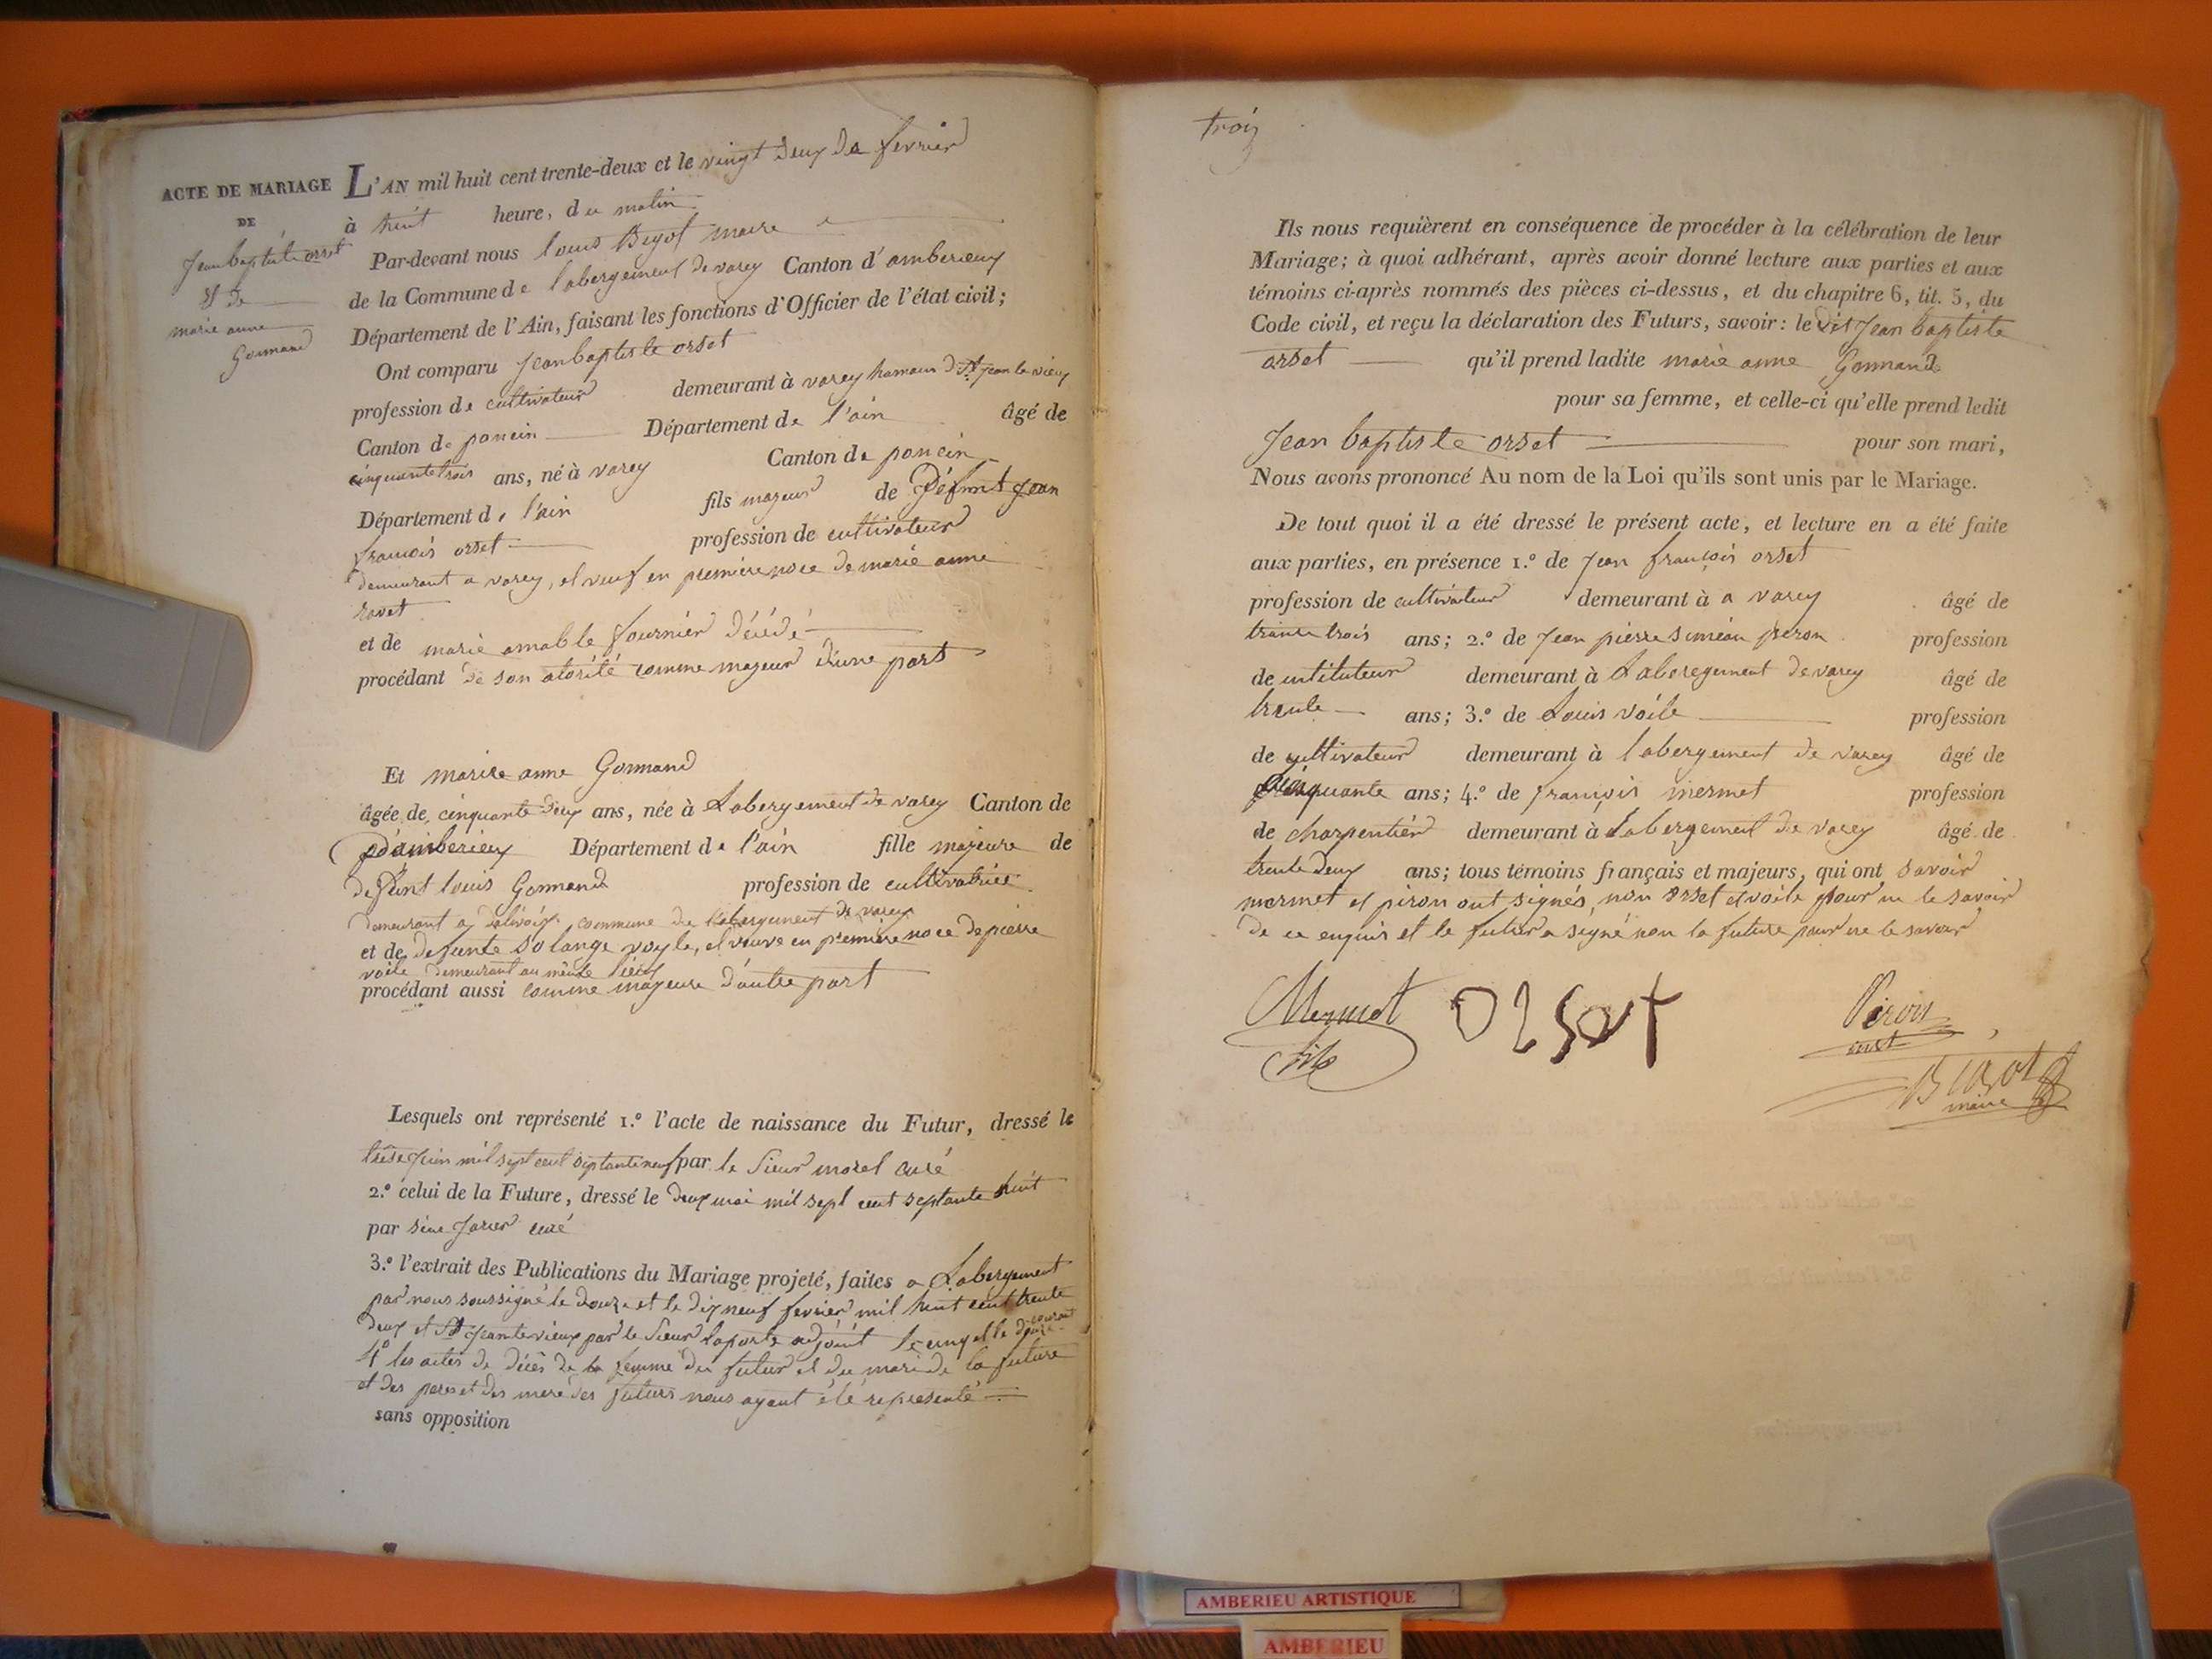 ACTE DE MARIAGE
DE
Jean baptiste orset
et de
marie anne
Gonnand
L'AN mil huit cent trente-deux et le vingt deux de fevrier
à huit heure, du matin
Par-devant nous louis Bigot maire
de la Commune de labergement de varey Canton d'amberieux
Département de l'Ain, faisant les fonctions d'Officier de l'état civil;
Ont comparu Jean baptiste orset
profession de cultivateur demeurant à varey hamau d St jean le vieux
Canton de poncin Département de l'ain âgé de
cinquante trois ans, né à varey Canton de poncin
Département de l'ain fils majeur de Défunt Jean
francois orset profession de cultivateur
demeurant a varey, et veuf en première noce de marie anne
et de marie amable fournier décédé
procédant de son atorité comme majeur d'une part
Et marie anne Gonnand
âgée de cinquante deux ans, née à Labergement de varey Canton de
d'amberieux Département de l'ain fille majeure de
defunt louis Gonnand profession de cultivatrice
demeurant a commune de labergement de varey
et de defunte Solange voyle, et veuve en première noce de pierre
voile demeurant au même lieux
procédant aussi comme majeure d'autre part
Lesquels ont représenté 1.º l'acte de naissance du Futur, dressé le
trése juin mil sept cent septante neuf par le Sieur morel curé
2.º celui de la Future, dressé le deux mai mil sept cent septante huit
par curé
3.º l'extrait des Publications du Mariage projeté, faites a Labergement
par nous soussigné le douze et le dix neuf fevrier mil huit cent trente
deux et St Jean le vieux par le Sieur laporte adjoint le cinq et le douze courant
4º les actes de décès de la femme du futur et du mari de la future
et des peres et des mere des futurs nous ayant été representé
sans opposition
trois
Ils nous requièrent en conséquence de procéder à la célébration de leur
Mariage; à quoi adhérant, après avoir donné lecture aux parties et aux
témoins ci-après nommés des pièces ci-dessus, et du chapitre 6, tit. 5, du
Code civil, et reçu la déclaration des Futurs, savoir: le dit Jean baptiste
orset qu'il prend ladite marie anne Gonnand
pour sa femme, et celle-ci qu'elle prend ledit
Jean baptiste orset pour son mari,
Nous avons prononcé Au nom de la Loi qu'ils sont unis par le Mariage.
De tout quoi il a été dressé le présent acte, et lecture en a été faite
aux parties, en présence 1.º de Jean françois orset
profession de cultivateur demeurant à a varey âgé de
trante trois ans; 2.º de Jean pierre Siméan peron profession
de intituteur demeurant à Laberegement de varey âgé de
trente ans; 3.º de Louis voile profession
de cultivateur demeurant à labergement de varey âgé de
cinquante ans; 4.º de françois mermet profession
de charpentier demeurant à Labergement de varey âgé de
trente deux ans; tous témoins français et majeurs, qui ont savoir
mermet et piron ont signés, non orset et voile pour ne le savoir
de ce enquis et le futur a signé non la future pour ne le savoir
Mermet
fils
orset
Piron
inst
Bigot
maire
AMBERIEU ARTISTIQUE
AMBERIEU